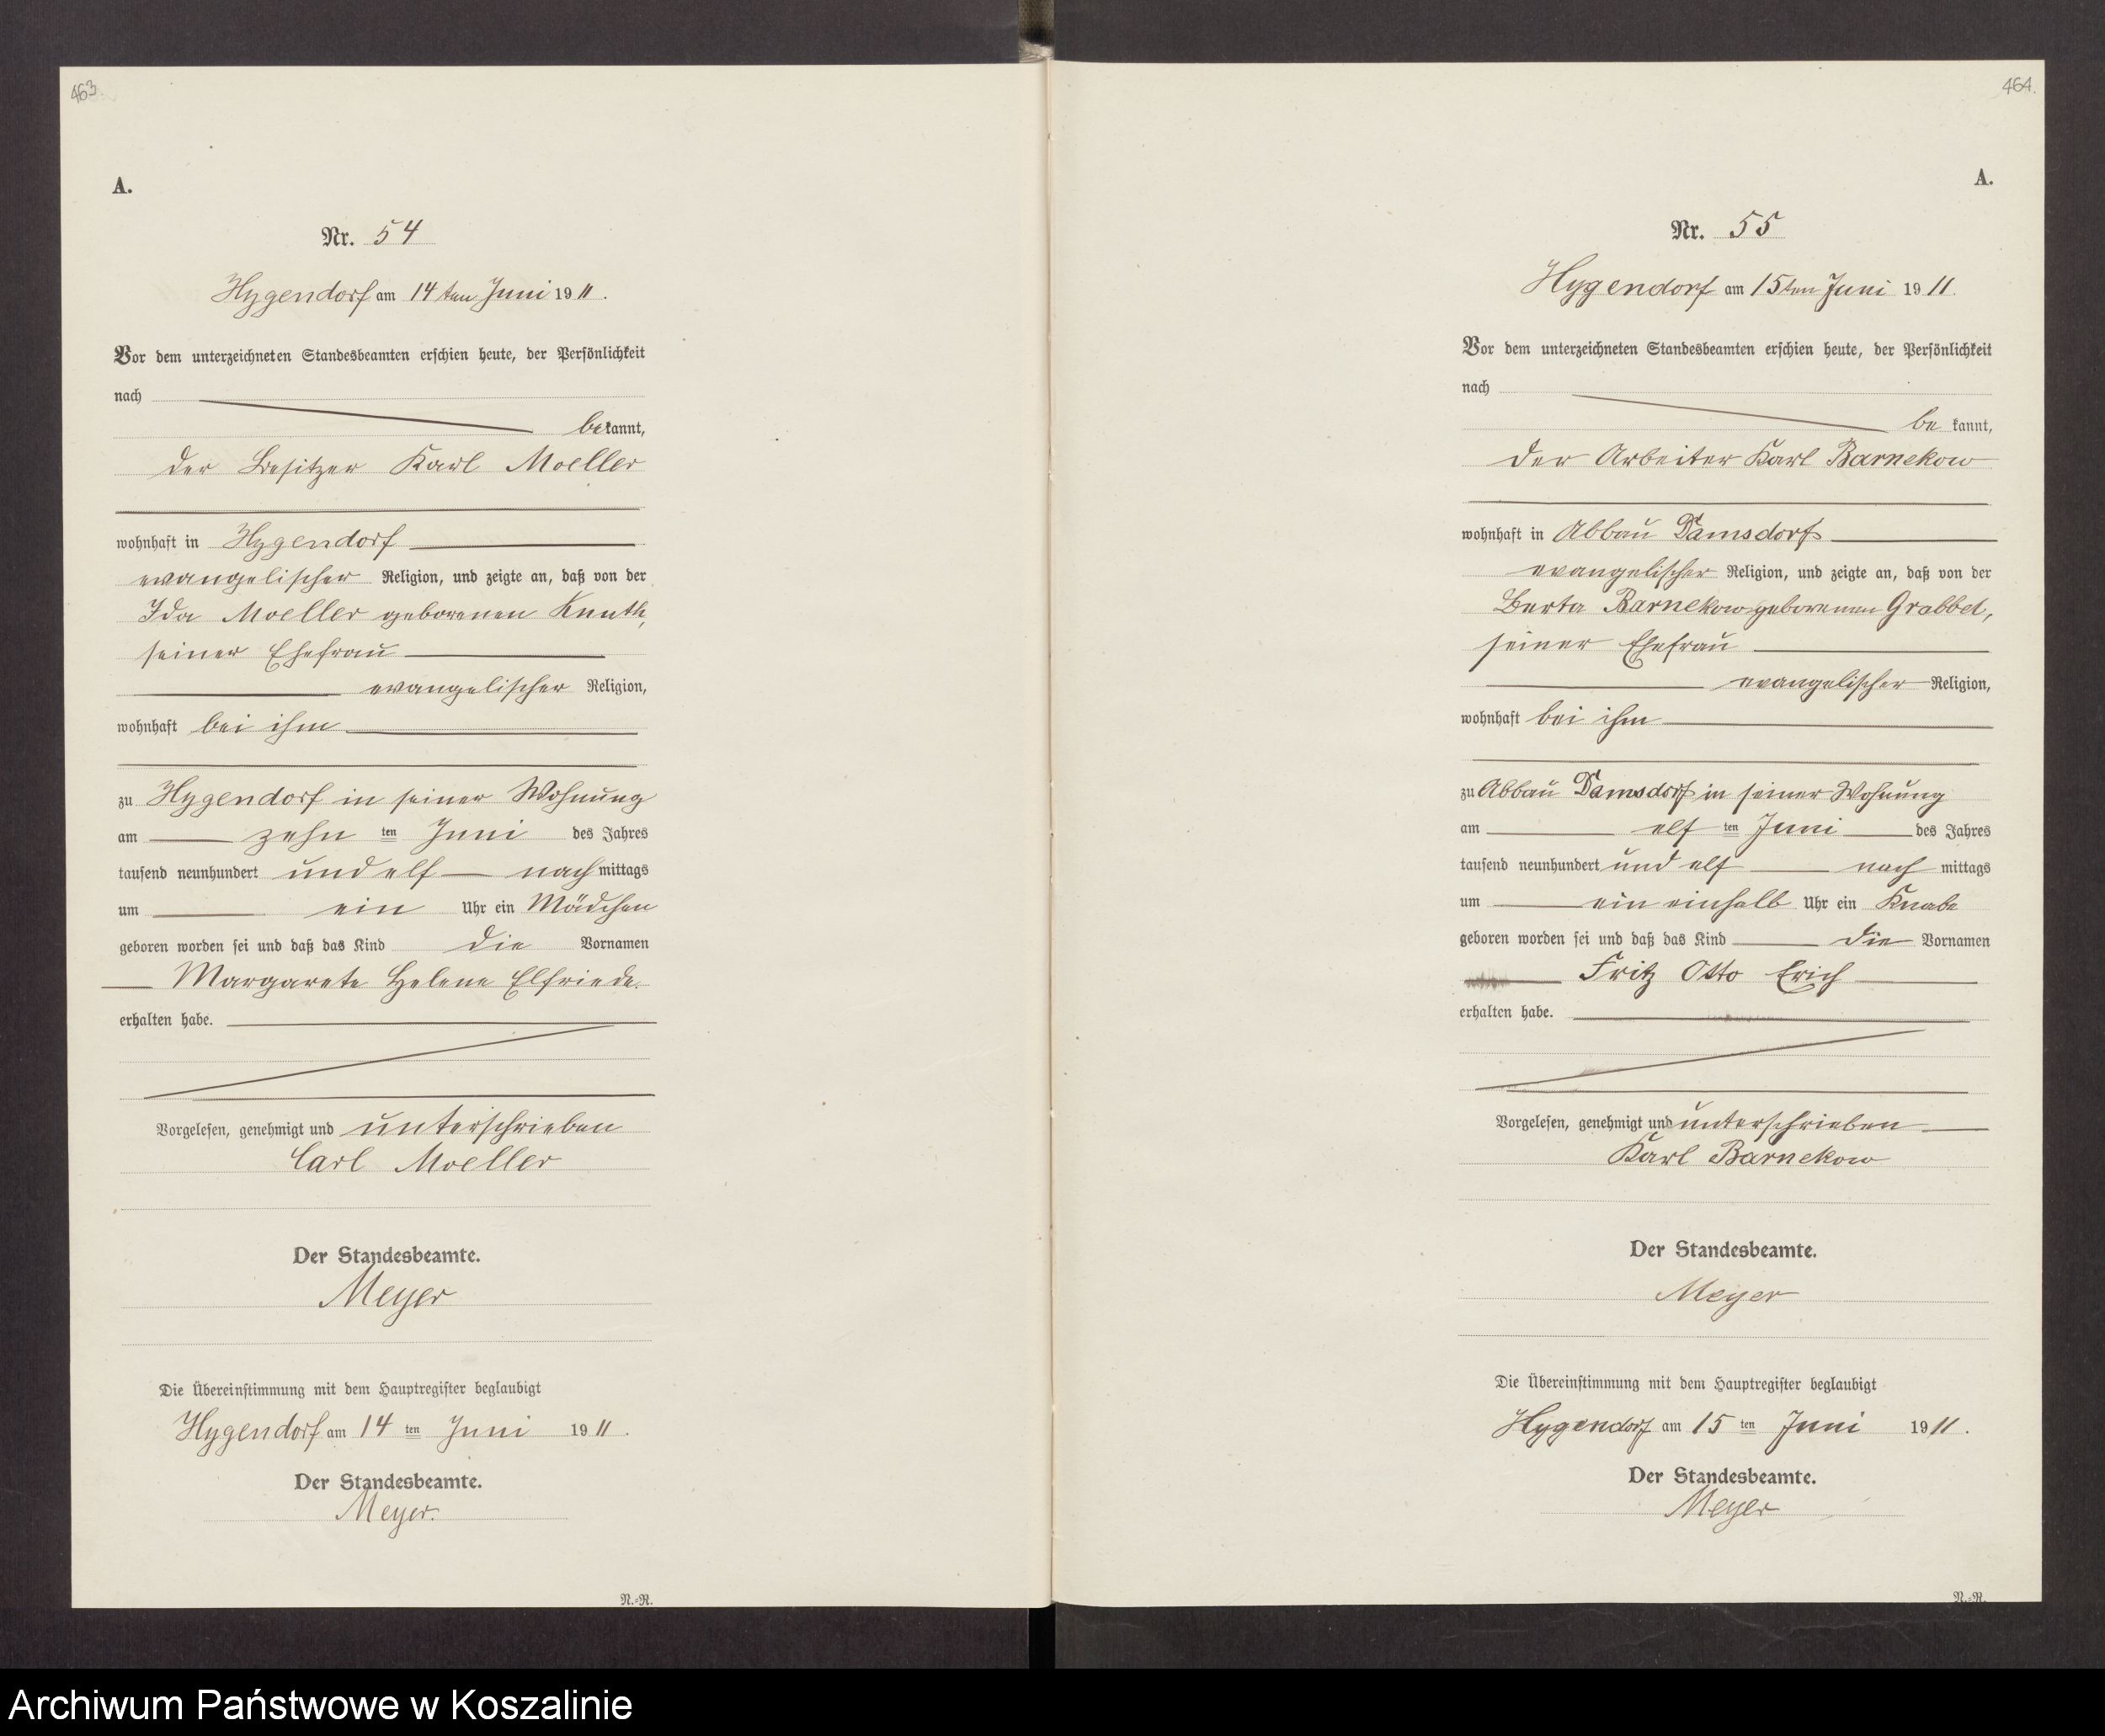 463.
A.
Nr. 54
Hygendorf am 14ten Juni 1911.
Vor dem unterzeichneten Standesbeamten erschien heute, der Persönlichkeit
nach
bekannt,
der Besitzer Karl Moeller
wohnhaft in Hygendorf
evangelischer Religion, und zeigte an, daß von der
Ida Moeller geborenen Knuth,
seiner Ehefrau
evangelischer Religion,
wohnhaft bei ihm
zu Hygendorf in seiner Wohnung
am zehn ten Juni des Jahres
tausend neunhundert und elf nachmittags
um ein Uhr ein Mädchen
geboren worden sei und daß das Kind die Vornamen
Margarete Helene Elfriede.
erhalten habe.
Vorgelesen, genehmigt und unterschrieben
Carl Moeller
Der Standesbeamte.
Meyer
Die Übereinstimmung mit dem Hauptregister beglaubigt
Hygendorf am 14 ten Juni 1911.
Der Standesbeamte.
Meyer.
N.=R.
464.
A.
Nr. 55
Hygendorf am 15ten Juni 1911.
Vor dem unterzeichneten Standesbeamten erschien heute, der Persönlichkeit
nach
be kannt,
der Arbeiter Karl Barnekow
wohnhaft in Abbau Damsdorf
evangelischer Religion, und zeigte an, daß von der
Berta Barnekow geborenen Grabbel,
seiner Ehefrau
evangelischer Religion,
wohnhaft bei ihm
zu Abbau Damsdorf in seiner Wohnung
am elf ten Juni des Jahres
tausend neunhundert und elf nach mittags
um ein einhalb Uhr ein Knabe
geboren worden sei und daß das Kind die Vornamen
Fritz Otto Erich
erhalten habe.
Vorgelesen, genehmigt und unterschrieben
Karl Barnekow
Der Standesbeamte.
Meyer
Die Übereinstimmung mit dem Hauptregister beglaubigt
Hygendorf am 15 ten Juni 1911.
Der Standesbeamte.
Meyer
N.=R.
Archiwum Państwowe w Koszalinie